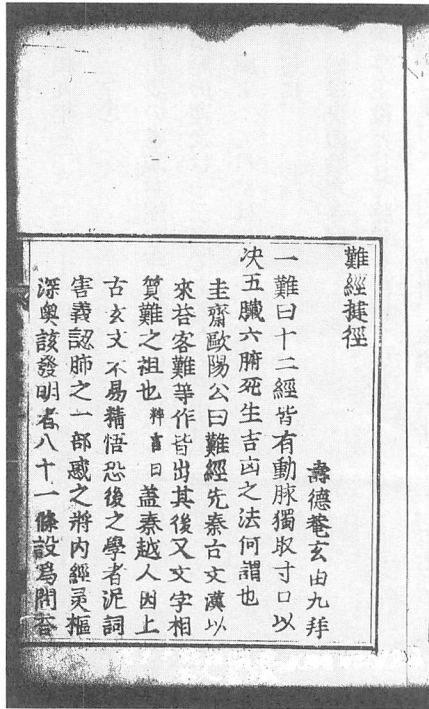 難經捷徑
壽德菴玄由九拜
一難曰十二經皆有動脉獨取寸口以
决五臟六腑死生吉凶之法何謂也
圭齋歐陽公曰難經先秦古文漢以
來荅客難等作皆出其後又文字相
質難之祖也 粹言曰 蓋秦越人因上
古玄文不易精悟恐後之學者泥詞
害義認肺之一部惑之將内經灵樞
深奥該發明者八十一條設爲問荅